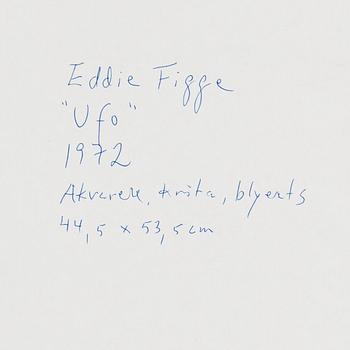 Eddie Figge
"Ufo"
1972
Akvarell, krita, blyerts
44,5 x 53,5 cm